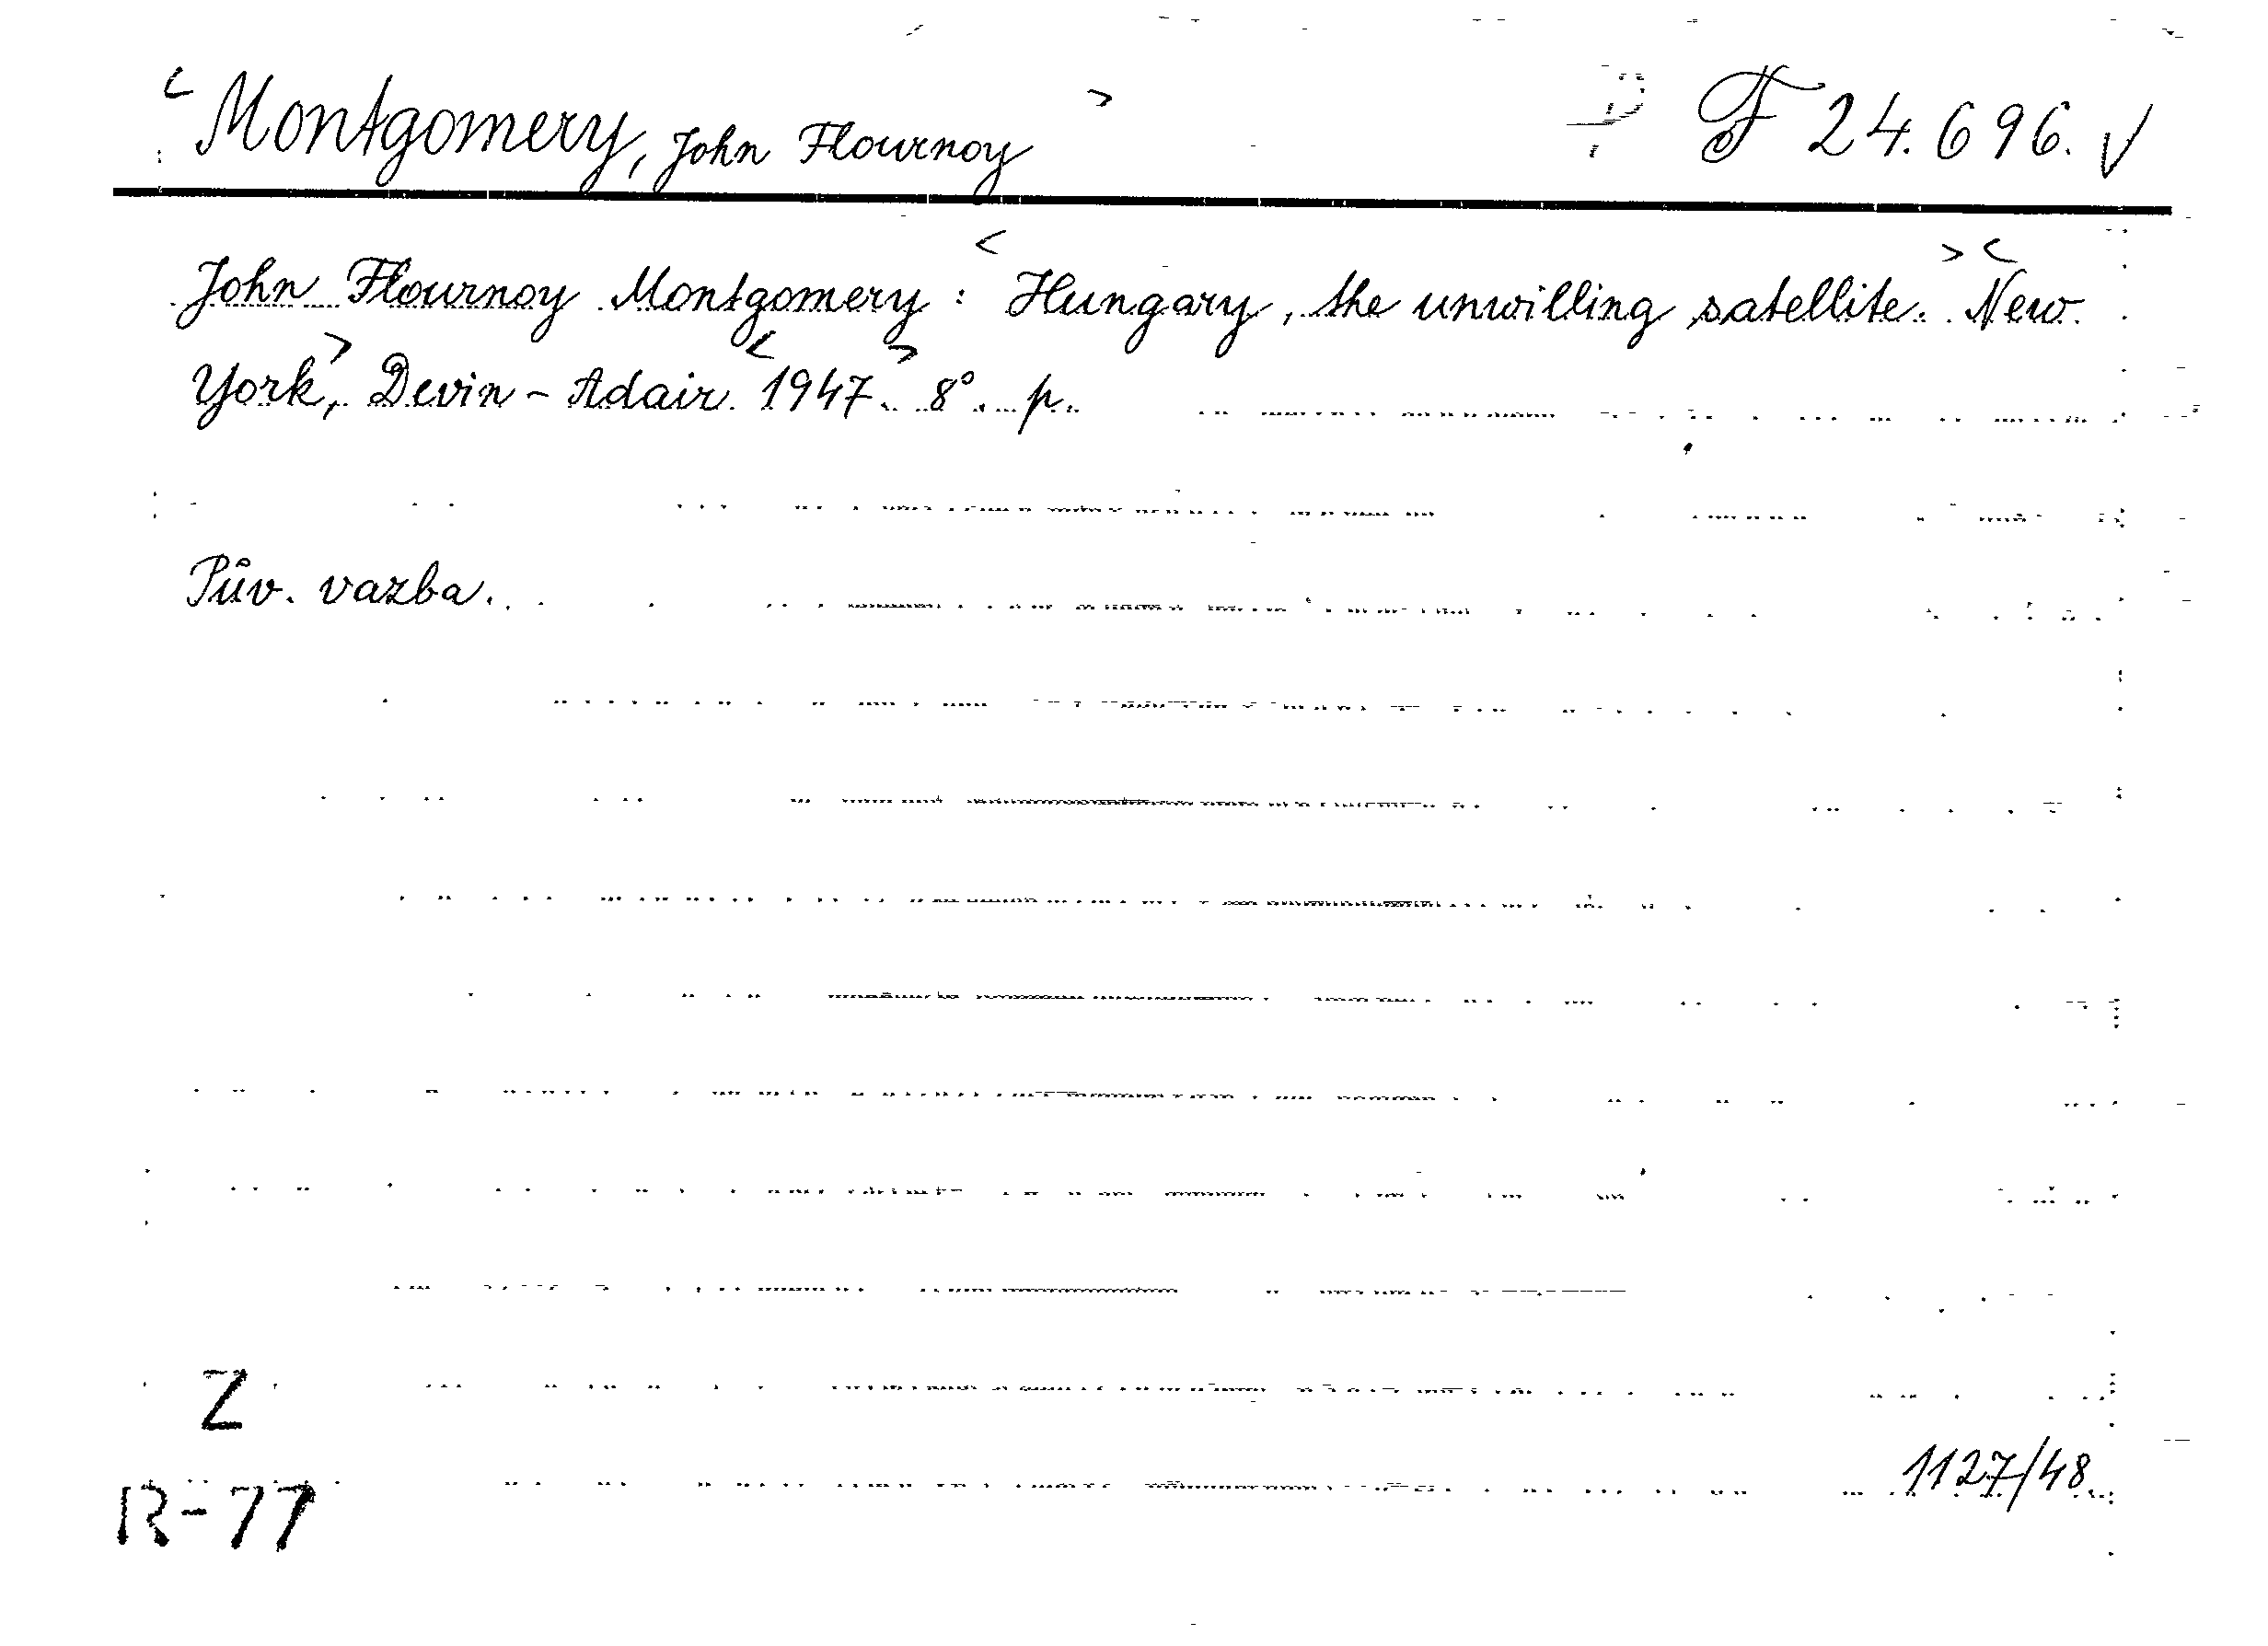 <Montgomery, John Flournoy> F 24.696. √
John Flournoy Montgomery: <Hungary, the unwilling satellite.> <New
York>, Devin-Adair. <1947.> 8°. p.
Pův. vazba.
Z
1127/48.
R-77